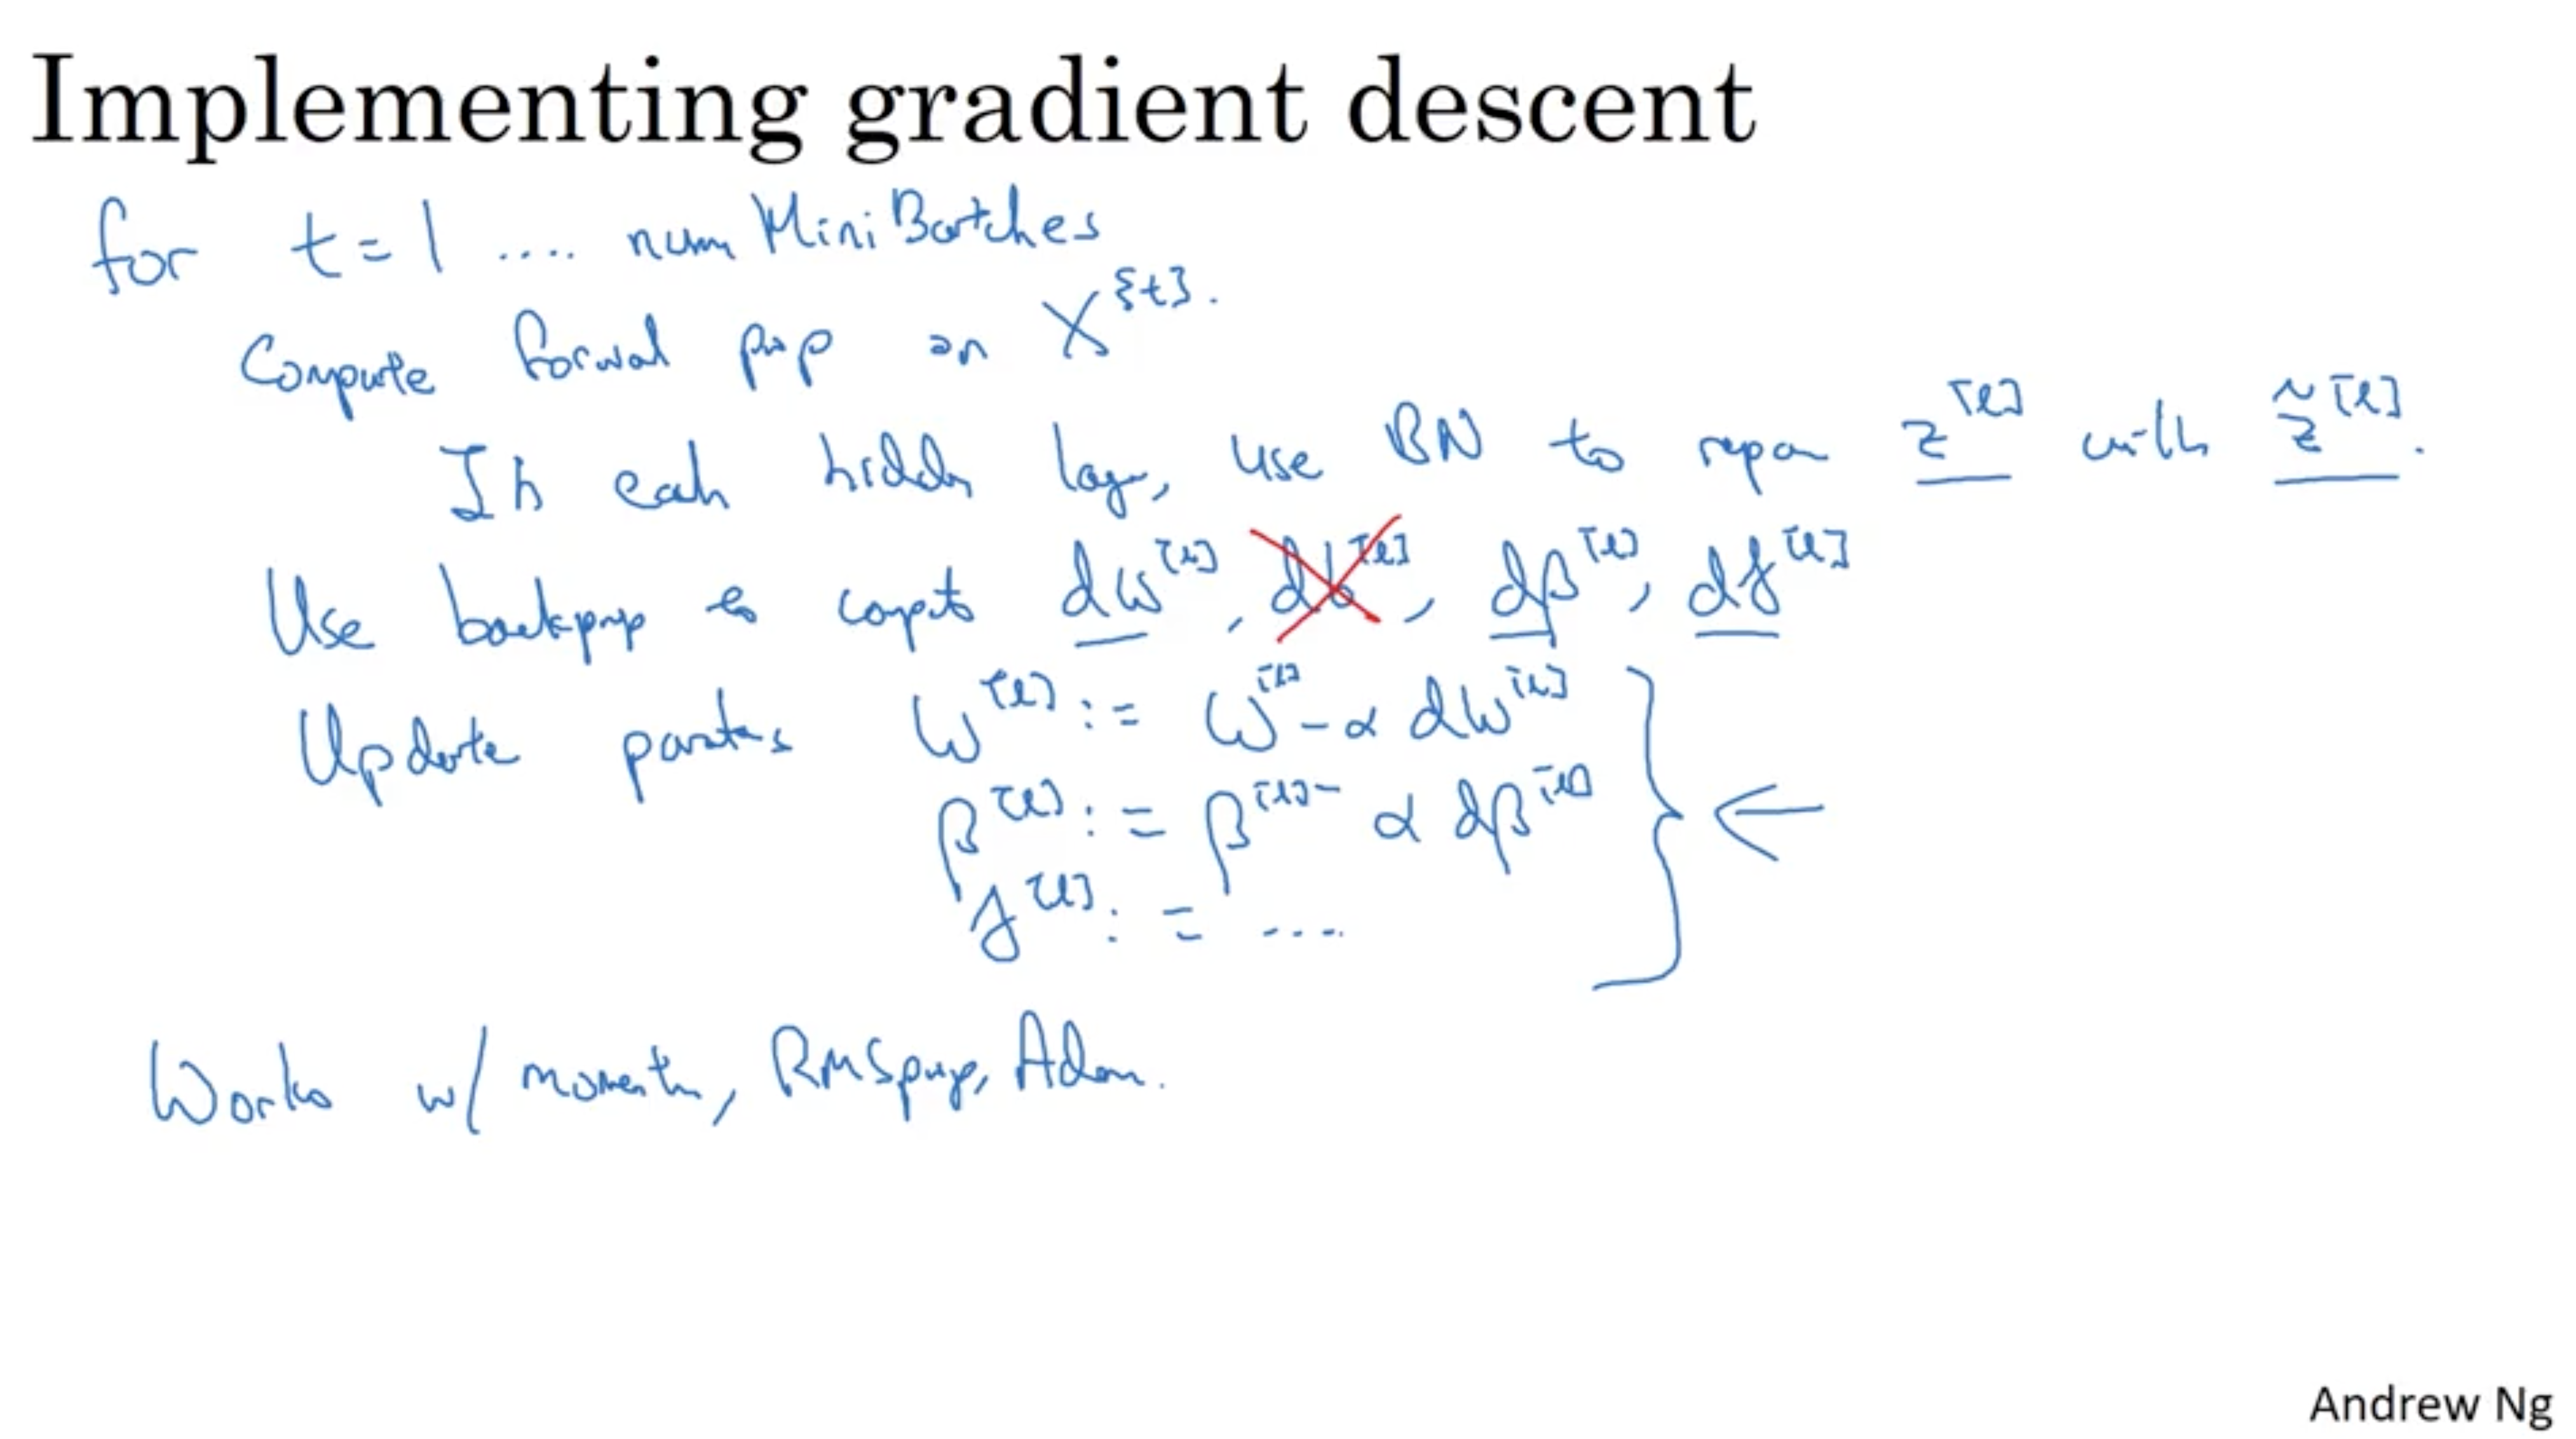 Implementing gradient descent
for t = 1 .... num MiniBatches
Compute forward prop on X^{t}.
In each hidden layer, use BN to replace z^[l] with z̃^[l].
Use backprop to compute dW^[l], db^[l], dβ^[l], dγ^[l]
Update parameters W^[l] := W^[l] - α dW^[l]
β^[l] := β^[l] - α dβ^[l]
γ^[l] := ....
Works w/ momentum, RMSprop, Adam.
Andrew Ng